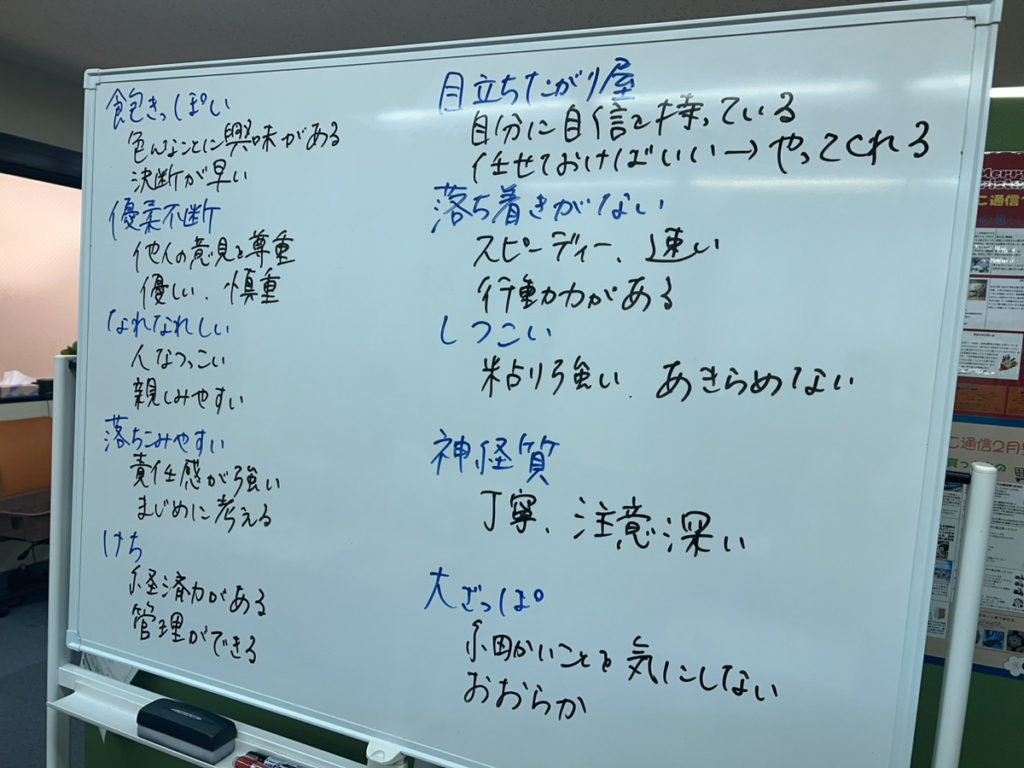 飽きっぽい
色んなことに興味がある
決断が早い
優柔不断
他人の意見を尊重
優しい、慎重
なれなれしい
人なつっこい
親しみやすい
落ちこみやすい
責任感が強い
まじめに考える
けち
経済力がある
管理ができる
目立ちたがり屋
自分に自信を持っている
任せておけばいい→やってくれる
落ち着きがない
スピーディー、速い
行動力がある
しつこい
粘り強い、あきらめない
神経質
丁寧、注意深い
大ざっぱ
細かいことを気にしない
おおらか
こ通信
こ通信2月